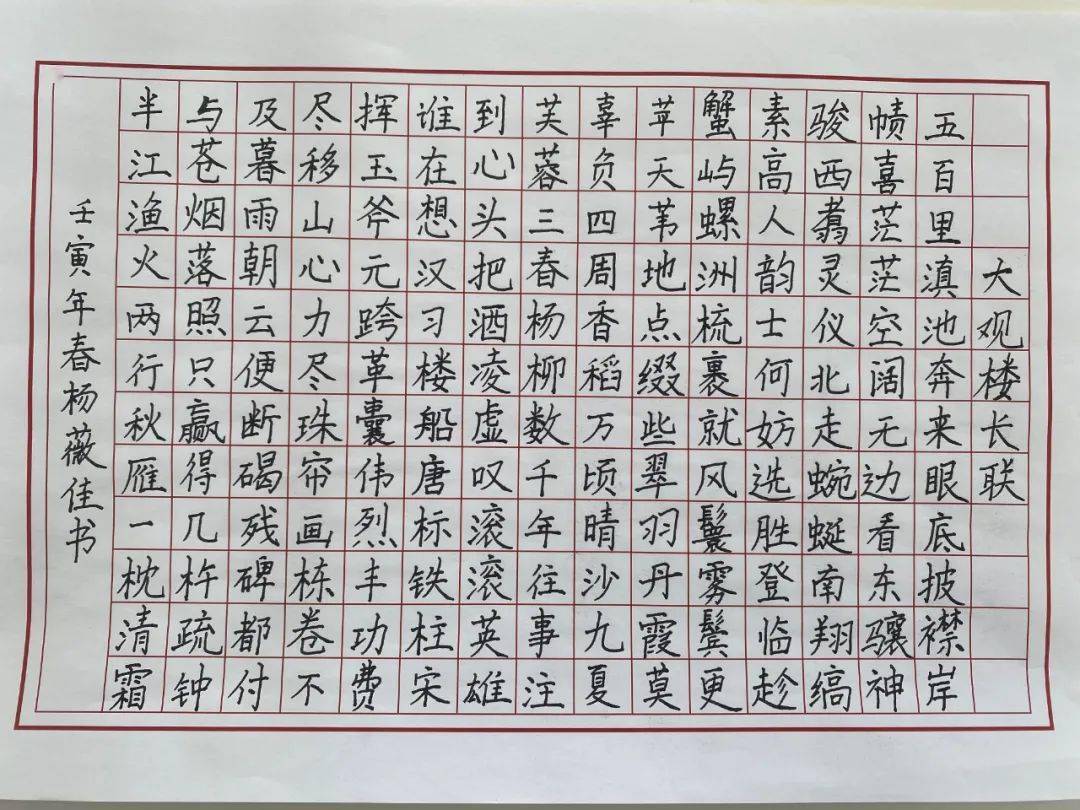 大观楼长联
五百里滇池奔来眼底披襟岸
帻喜茫茫空阔无边看东骧神
骏西翥灵仪北走蜿蜒南翔缟
素高人韵士何妨选胜登临趁
蟹屿螺洲梳裹就风鬟雾鬓更
苹天苇地点缀些翠羽丹霞莫
辜负四周香稻万顷晴沙九夏
芙蓉三春杨柳数千年往事注
到心头把酒凌虚叹滚滚英雄
谁在想汉习楼船唐标铁柱宋
挥玉斧元跨革囊伟烈丰功费
尽移山心力尽珠帘画栋卷不
及暮雨朝云便断碣残碑都付
与苍烟落照只赢得几杵疏钟
半江渔火两行秋雁一枕清霜
壬寅年春杨薇佳书